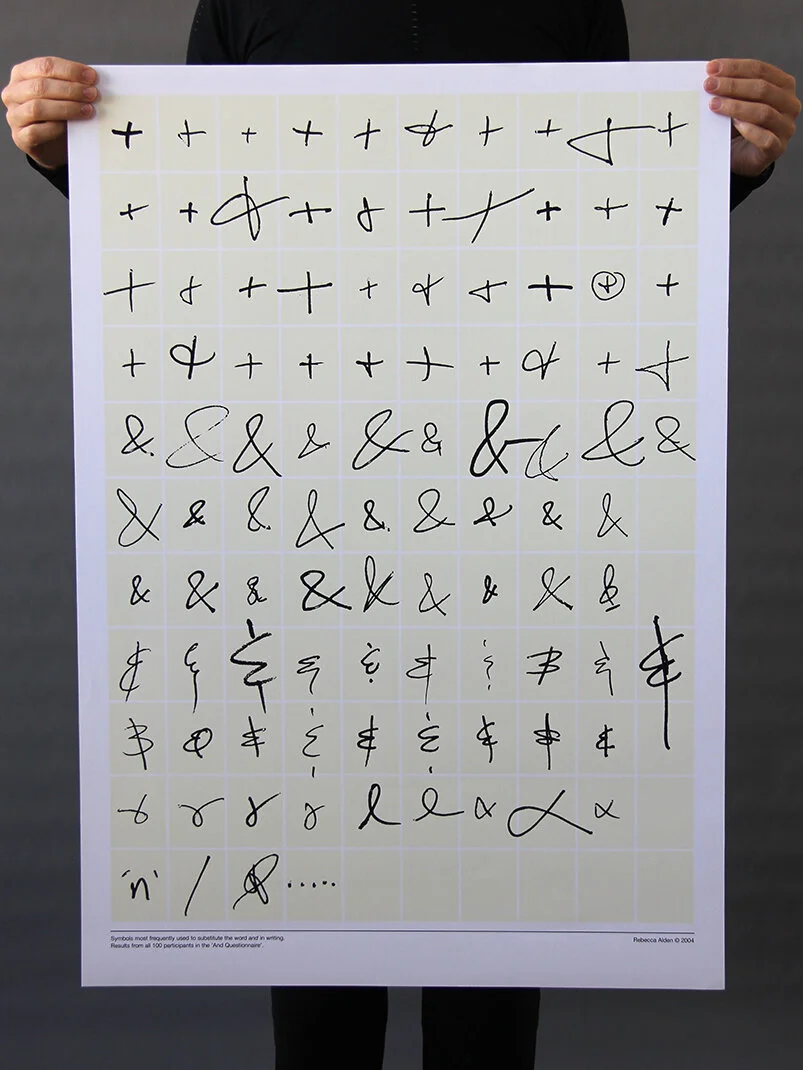 + + + + + + + + + +
+ + + + + + + + + +
+ + + + + + + + + +
+ + + + + + + + + +
& & & & & & & & & &
& & & & & & & & &
& & & & & & & & &
& & & & & & & & & &
& & & & & & & & &
'n' / & .....
Symbols most frequently used to substitute the word and in writing.
Results from all 100 participants in the 'And Questionnaire'.
Rebecca Alden © 2004